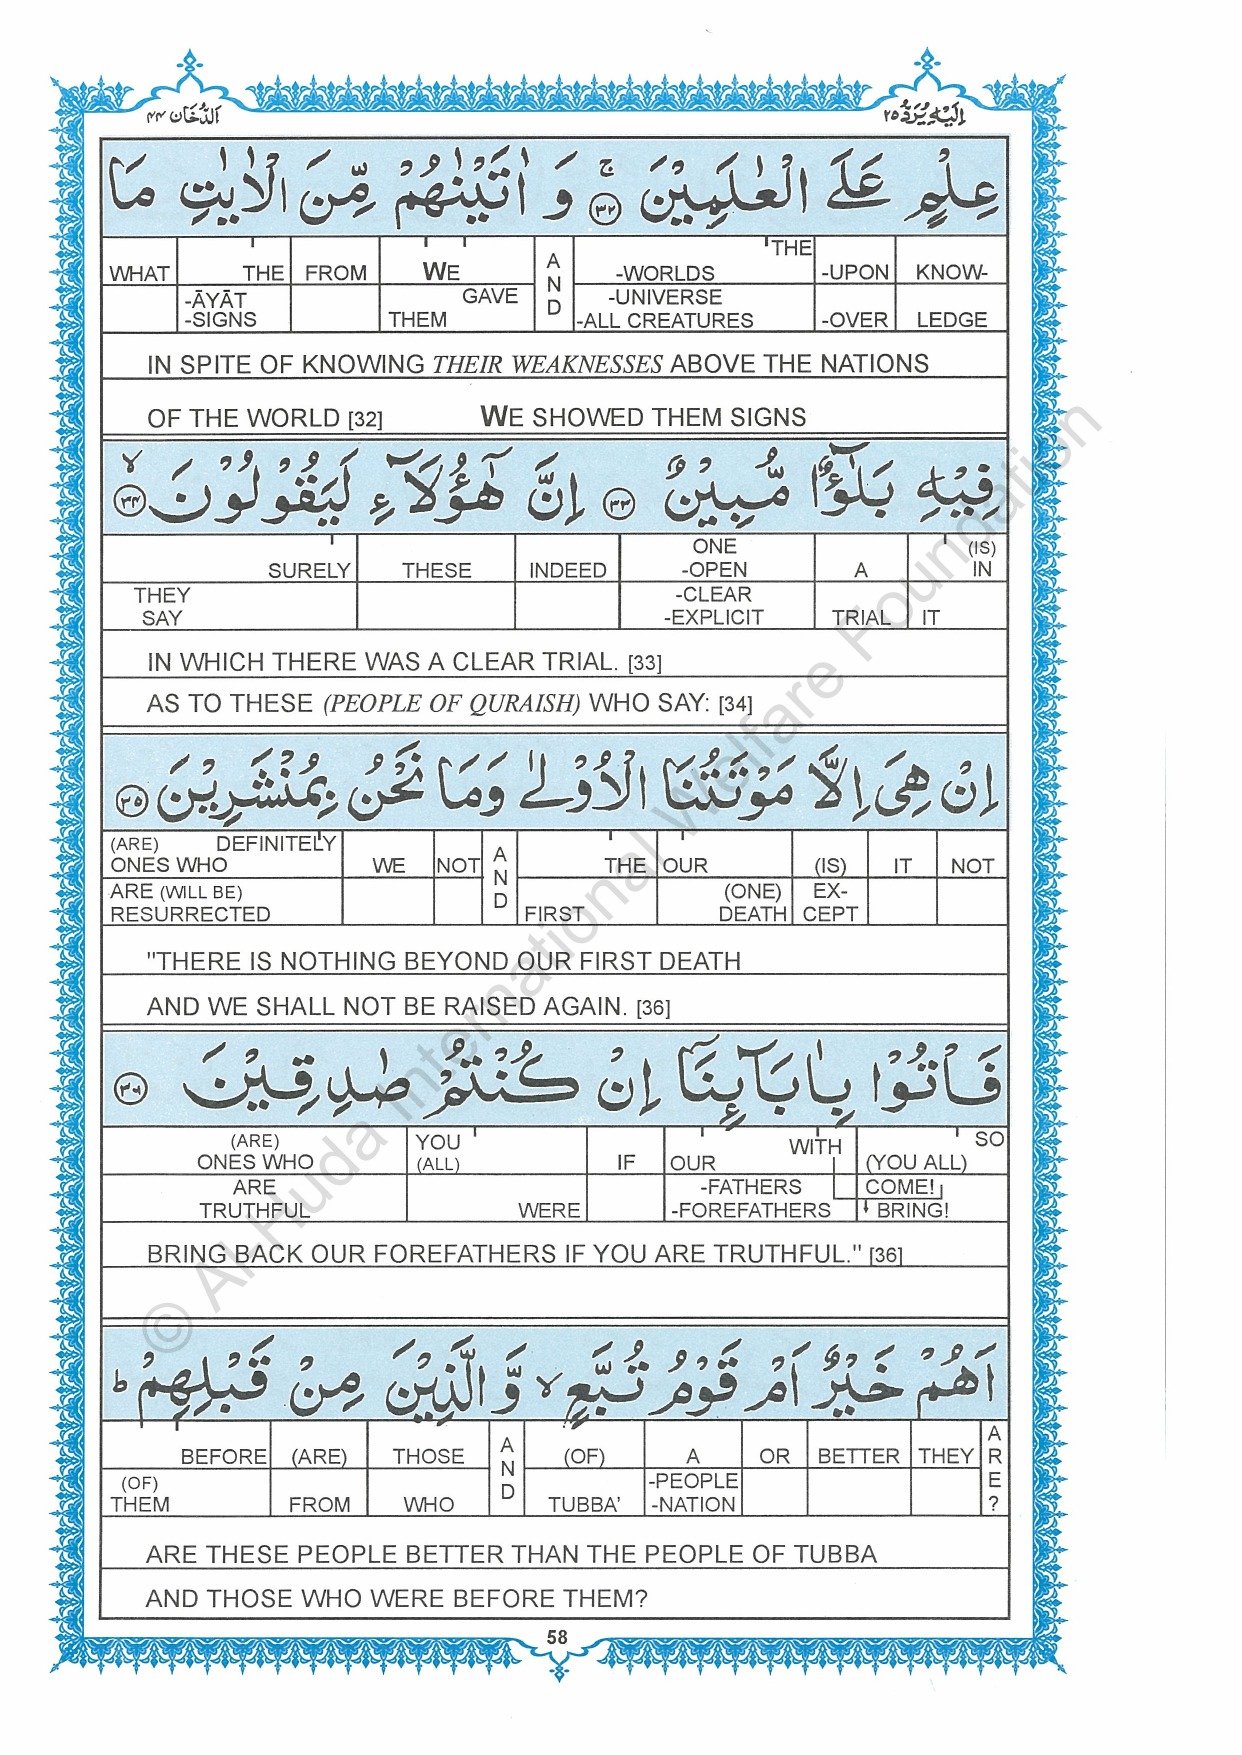 اَلدُّخَان ٤٤
اِلَيْهِ يُرَدُّ ٢٥
عِلْمٍ عَلَى الْعٰلَمِيْنَ ۚ ﴿٣٢﴾ وَ اٰتَيْنٰهُمْ مِّنَ الْاٰيٰتِ مَا
WHAT THE FROM WE AND THE -WORLDS -UPON KNOW-
-ĀYĀT -SIGNS GAVE THEM -UNIVERSE -ALL CREATURES -OVER LEDGE
IN SPITE OF KNOWING THEIR WEAKNESSES ABOVE THE NATIONS
OF THE WORLD [32] WE SHOWED THEM SIGNS
فِيْهِ بَلٰٓؤٌا مُّبِيْنٌ ﴿٣٣﴾ اِنَّ هٰٓؤُلَآءِ لَيَقُوْلُوْنَ ۙ ﴿٣٤﴾
SURELY THESE INDEED ONE -OPEN A (IS) IN
THEY SAY -CLEAR -EXPLICIT TRIAL IT
IN WHICH THERE WAS A CLEAR TRIAL. [33]
AS TO THESE (PEOPLE OF QURAISH) WHO SAY: [34]
اِنْ هِيَ اِلَّا مَوْتَتُنَا الْاُوْلٰى وَمَا نَحْنُ بِمُنْشَرِيْنَ ﴿٣٥﴾
(ARE) DEFINITELY ONES WHO WE NOT AND THE OUR (IS) IT NOT
ARE (WILL BE) RESURRECTED FIRST (ONE) DEATH EX-CEPT
"THERE IS NOTHING BEYOND OUR FIRST DEATH
AND WE SHALL NOT BE RAISED AGAIN. [36]
فَاْتُوْا بِاٰبَآئِنَآ اِنْ كُنْتُمْ صٰدِقِيْنَ ﴿٣٦﴾
(ARE) ONES WHO YOU (ALL) IF OUR WITH SO (YOU ALL)
ARE TRUTHFUL WERE -FATHERS -FOREFATHERS COME! BRING!
BRING BACK OUR FOREFATHERS IF YOU ARE TRUTHFUL." [36]
اَهُمْ خَيْرٌ اَمْ قَوْمُ تُبَّعٍ ۙ وَّ الَّذِيْنَ مِنْ قَبْلِهِمْ ؕ
BEFORE (ARE) THOSE AND (OF) A OR BETTER THEY ARE?
(OF) THEM FROM WHO TUBBA' -PEOPLE -NATION
ARE THESE PEOPLE BETTER THAN THE PEOPLE OF TUBBA
AND THOSE WHO WERE BEFORE THEM?
58
© Al-Huda International Welfare Foundation